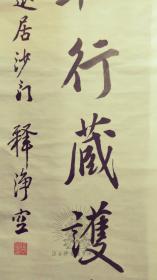 行藏護
居沙门 釋淨空